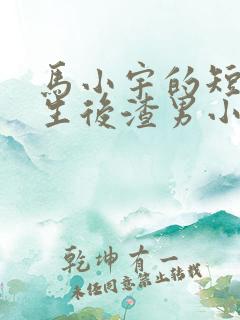 馬小宇的短
生後渣男小
乾坤有一
未經同意禁止轉載